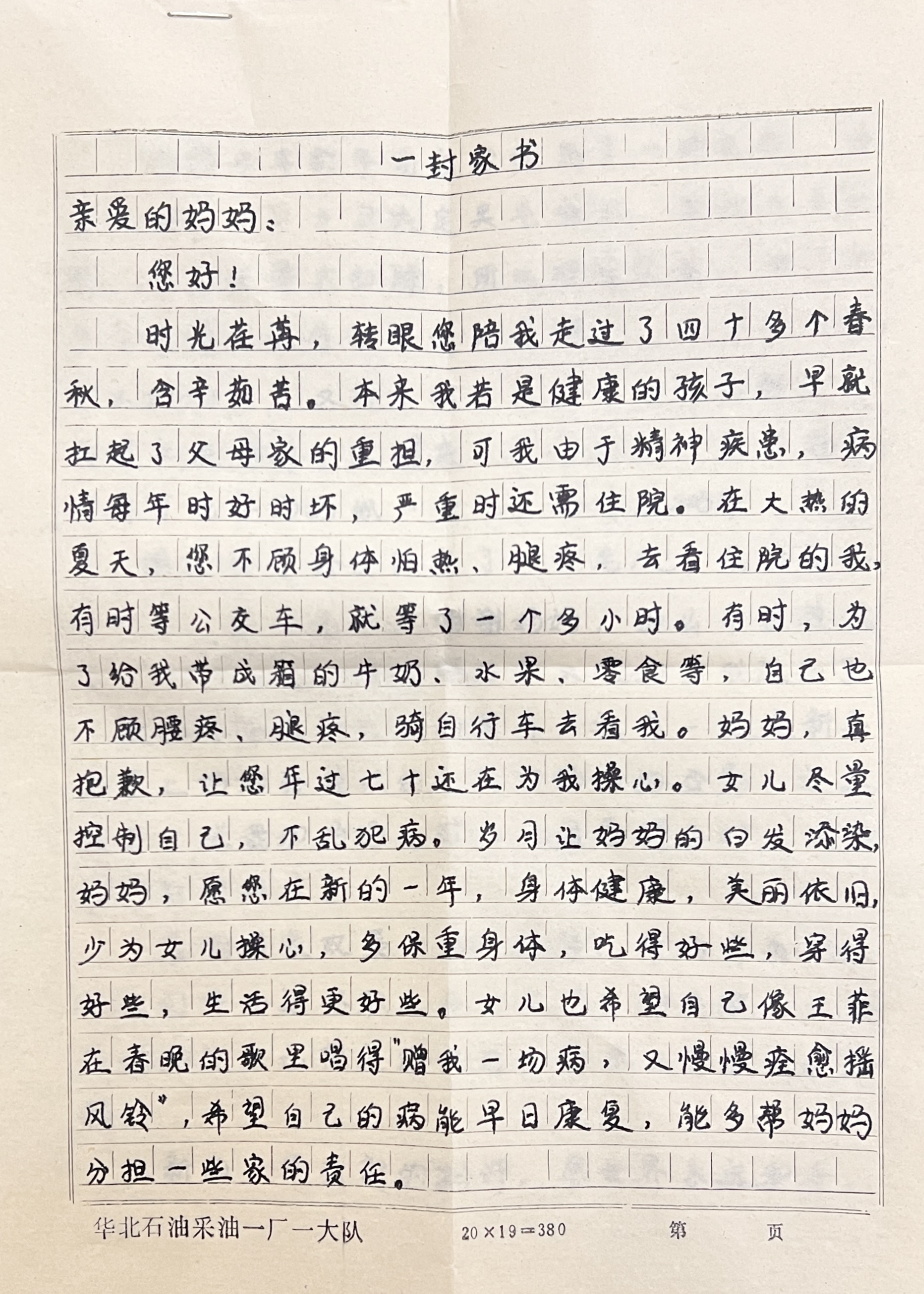 一封家书
亲爱的妈妈：
您好！
时光荏苒，转眼您陪我走过了四十多个春
秋，含辛茹苦。本来我若是健康的孩子，早就
扛起了父母家的重担，可我由于精神疾患，病
情每年时好时坏，严重时还需住院。在大热的
夏天，您不顾身体怕热、腿疼，去看住院的我，
有时等公交车，就等了一个多小时。有时，为
了给我带成箱的牛奶、水果、零食等，自己也
不顾腰疼、腿疼，骑自行车去看我。妈妈，真
抱歉，让您年过七十还在为我操心。女儿尽量
控制自己，不乱犯病。岁月让妈妈的白发添染，
妈妈，愿您在新的一年，身体健康，美丽依旧，
少为女儿操心，多保重身体，吃得好些，穿得
好些，生活得更好些。女儿也希望自己像王菲
在春晚的歌里唱得“赠我一场病，又慢慢痊愈摇
风铃”，希望自己的病能早日康复，能多帮妈妈
分担一些家的责任。
华北石油采油一厂一大队 20×19=380 第 页